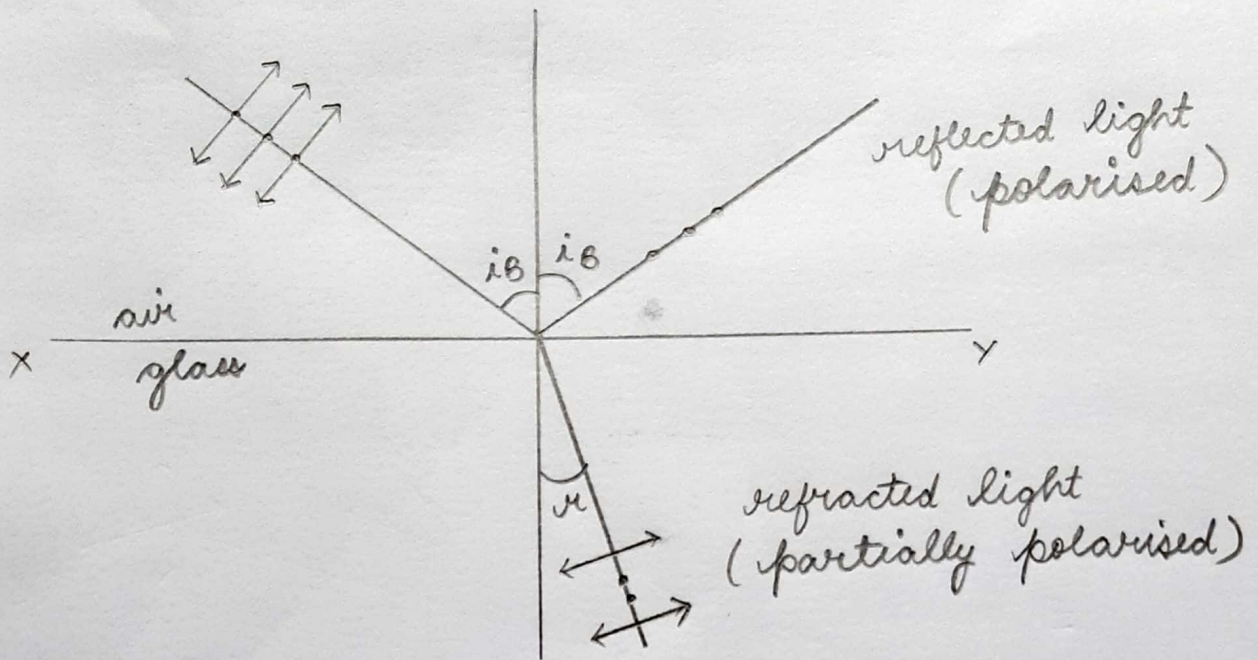 iB iB
reflected light
(polarised)
air
X Y
glass
r
refracted light
(partially polarised)